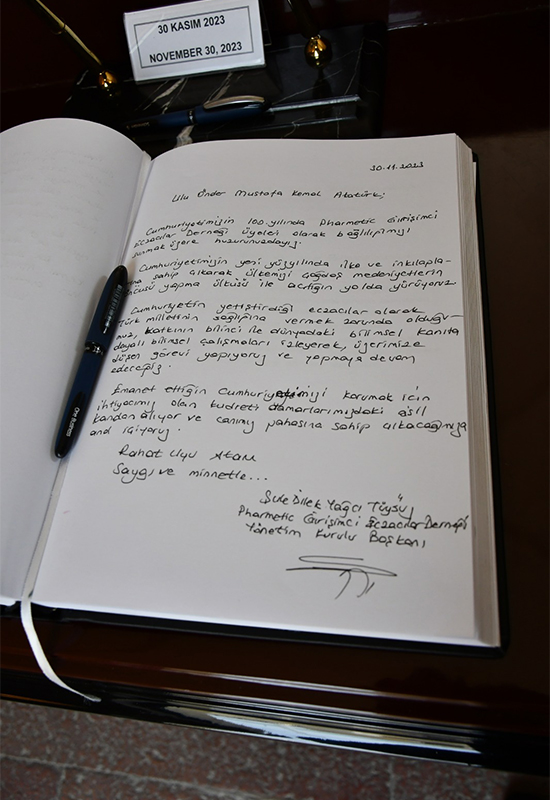 30 KASIM 2023
NOVEMBER 30, 2023
30.11.2023
Ulu Önder Mustafa Kemal Atatürk;
Cumhuriyetimizin 100.yılında Pharmetic Girişimci
Eczacılar Derneği üyeleri olarak bağlılığımızı
sunmak üzere huzurunuzdayız.
Cumhuriyetimizin yeni yüzyılında ilke ve inkılapla-
rına sahip çıkarak ülkemizi çağdaş medeniyetlerin
öncüsü yapma ülküsü ile açtığın yolda yürüyoruz
Cumhuriyetin yetiştirdiği eczacılar olarak
Türk milletinin sağlığına vermek zorunda olduğu-
muz, katkının bilinci ile dünyadaki bilimsel kanıta
dayalı bilimsel çalışmaları izleyerek, üzerimize
düşen görevi yapıyoruz ve yapmaya devam
edeceğiz.
Emanet ettiğin Cumhuriyetimizi korumak için
ihtiyacımız olan kudreti damarlarımızdaki asil
kandan alıyor ve canımız pahasına sahip çıkacağımıza
and içiyoruz.
Rahat Uyu Atam
Saygı ve minnetle...
Şule Dilek Yağcı Tüysüz
Pharmetic Girişimci Eczacılar Derneği
Yönetim Kurulu Başkanı
One Business